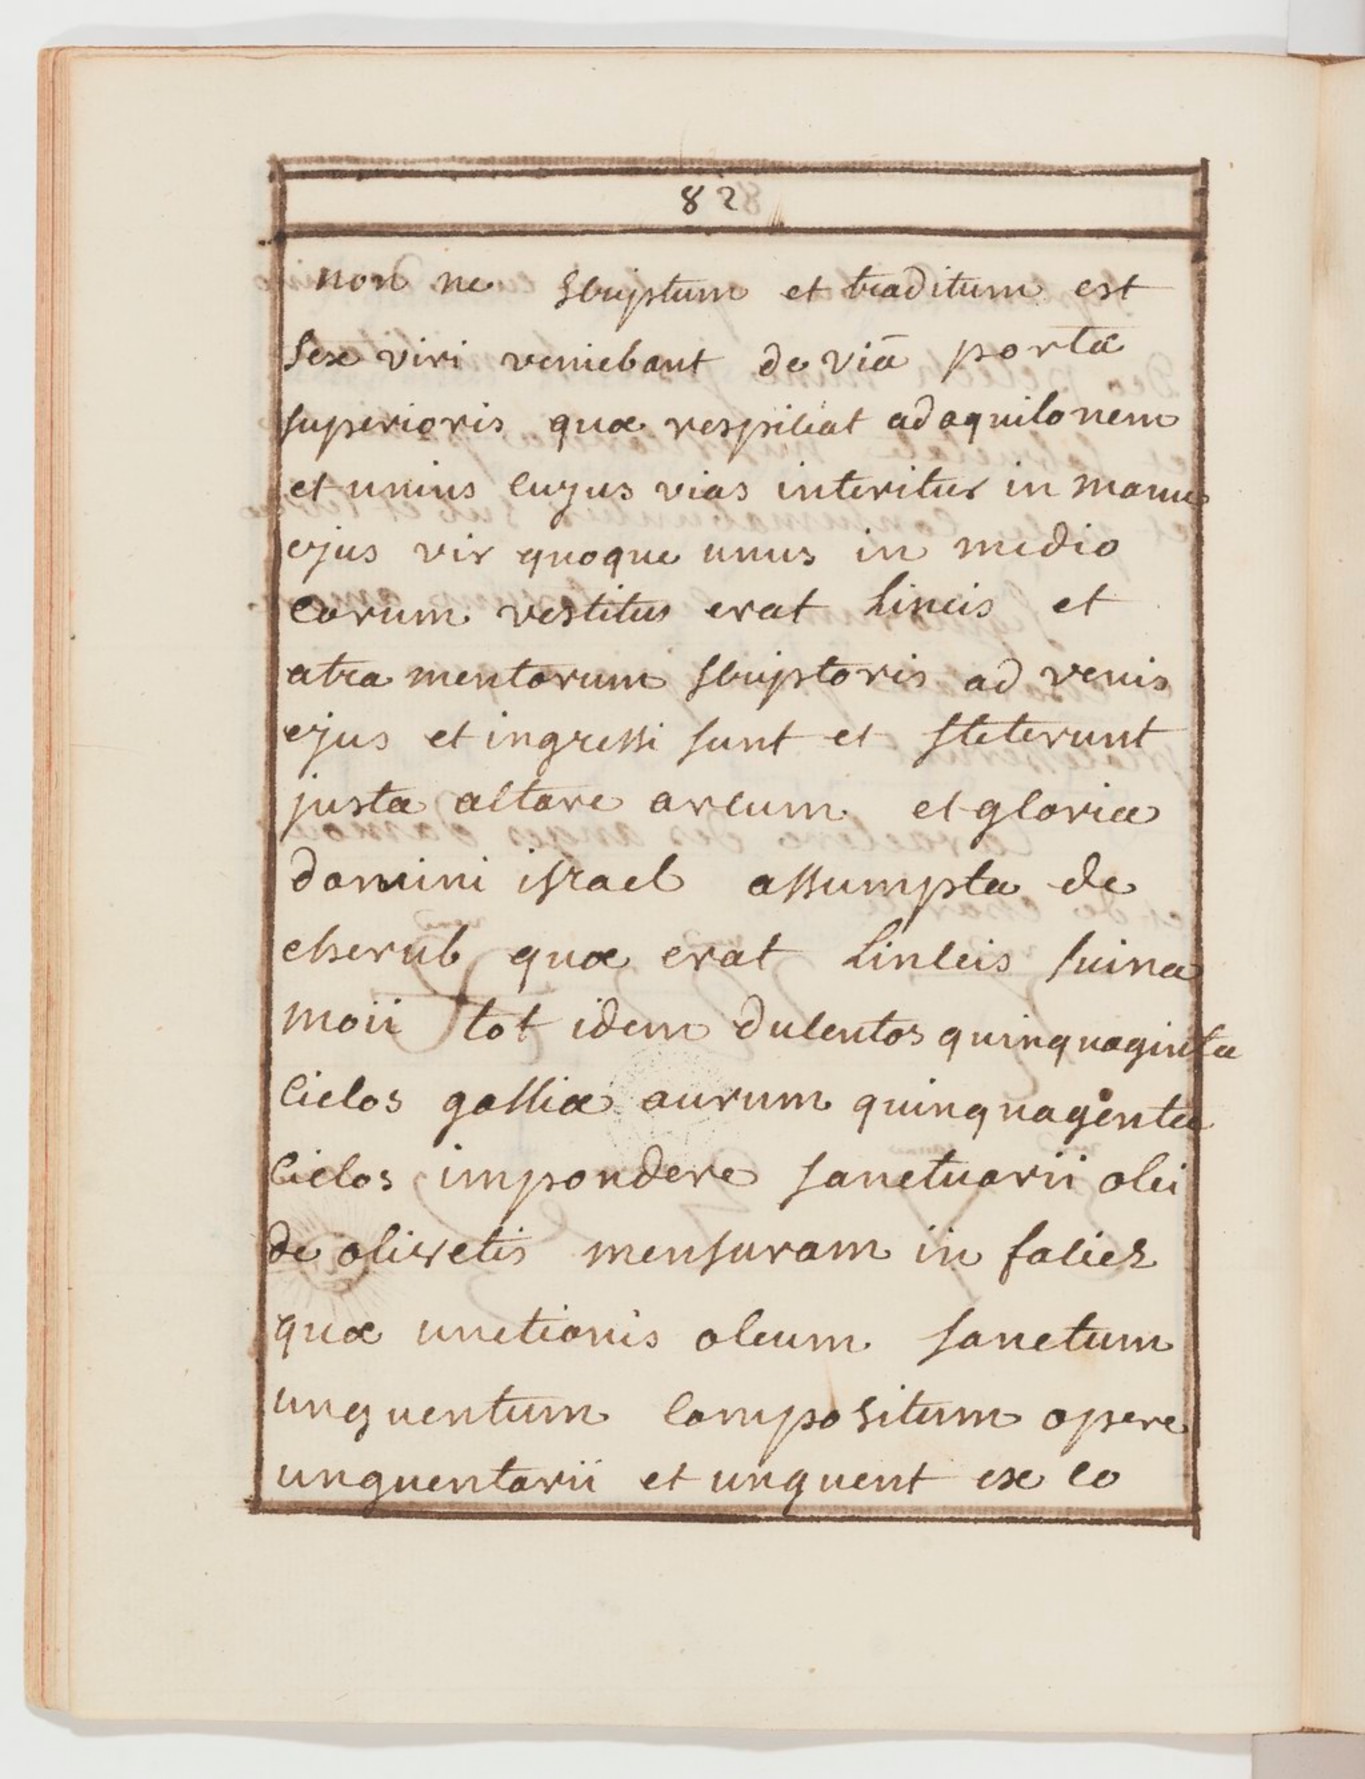 82
non ne scriptum et traditum est
sex viri veniebant de viā porta
superioris quæ respiciat ad aquilonem
et unius cuyus vias interitus in manu
ejus vir quoque unus in medio
eorum vestitus erat lineis et
atra mentorum scriptoris ad venis
ejus et ingressi sunt et steterunt
justa altare arcum et gloria
domini israel assumpta de
cherub quæ erat lincis suina
moii tot idem ducentos quinquaginta
ciclos gassiæ aurum quinquaginta
ciclos impondere sanctuarii olei
de olivetis mensuram in facies
quæ unctionis oleum sanctum
unguentum compositum opere
unguentarii et unguent ex eo